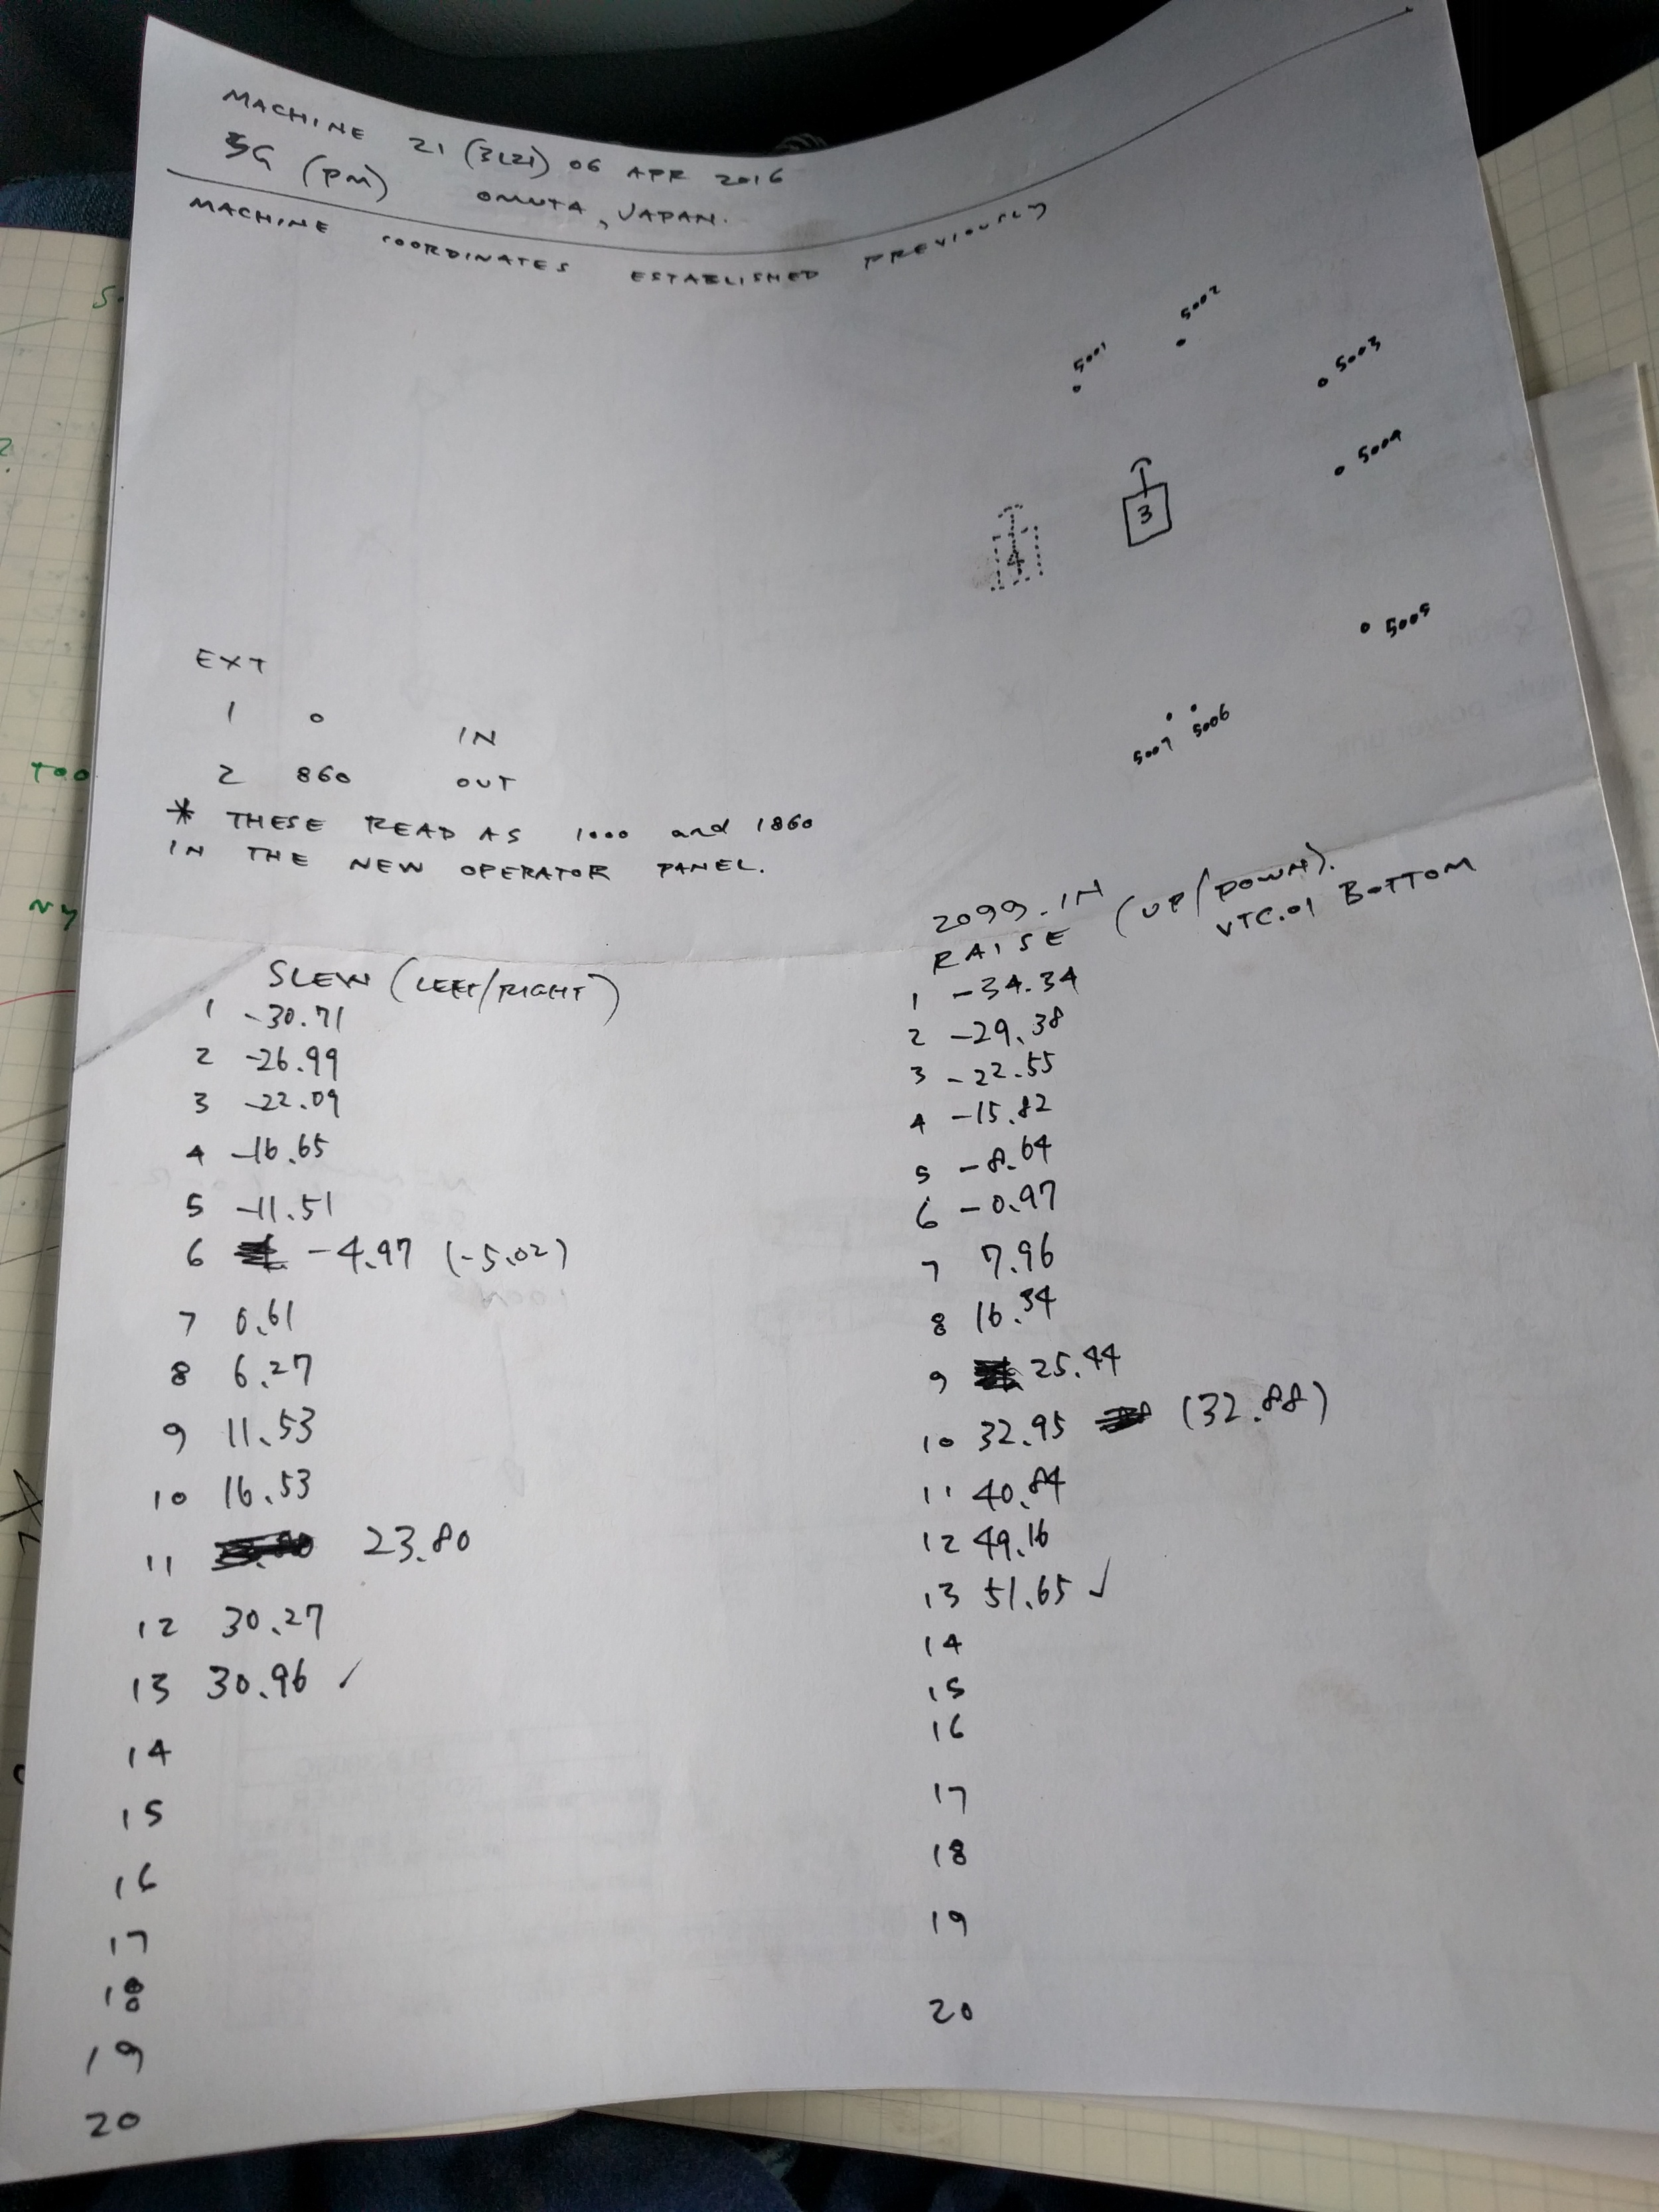 MACHINE 21 (3L21) 06 APR 2016
SG (PM) OMUTA, JAPAN.
MACHINE COORDINATES ESTABLISHED PREVIOUSLY
5001
5002
5003
5004
3
4
5005
5006
5007
EXT
1 0 IN
2 860 OUT
* THESE READ AS 1000 and 1860
IN THE NEW OPERATOR PANEL.
SLEW (LEFT/RIGHT)
1 -30.71
2 -26.99
3 -22.09
4 -16.65
5 -11.51
6 -4.97 (-5.02)
7 0.61
8 6.27
9 11.53
10 16.53
11 23.80
12 30.27
13 30.96 ✓
14
15
16
17
18
19
20
2099.IN
RAISE (UP/DOWN).
VTC.01 BOTTOM
1 -34.34
2 -29.38
3 -22.55
4 -15.82
5 -8.64
6 -0.97
7 7.96
8 16.34
9 25.44
10 32.95 (32.88)
11 40.84
12 49.16
13 51.65 ✓
14
15
16
17
18
19
20